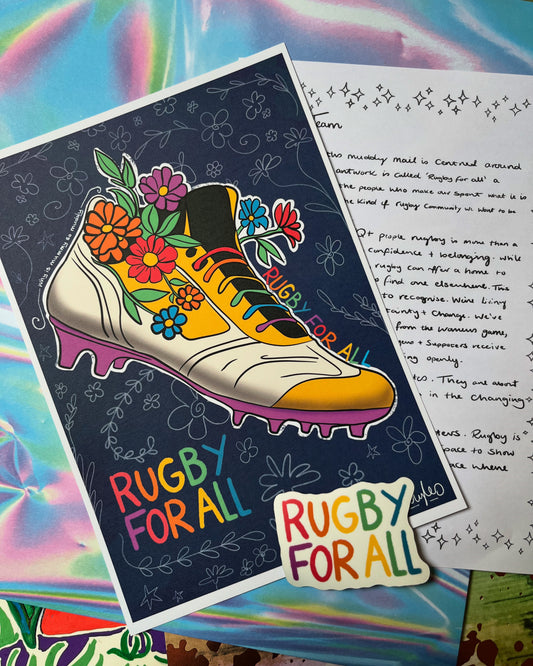 RUGBY
FOR ALL
RUGBY FOR ALL
RUGBY
FOR ALL
Team
muddy mail is centred around
artwork is called 'Rugby for all' a
the people who make our sport what it is
kind of rugby community we want to be
people rugby is more than a
confidence + belonging. While
rugby can offer a home to
find one elsewhere. This
to recognise. We're living
+ change. We've
from the womens game,
+ supporters receive
openly.
They are about
in the changing
Rugby is
space to show
where